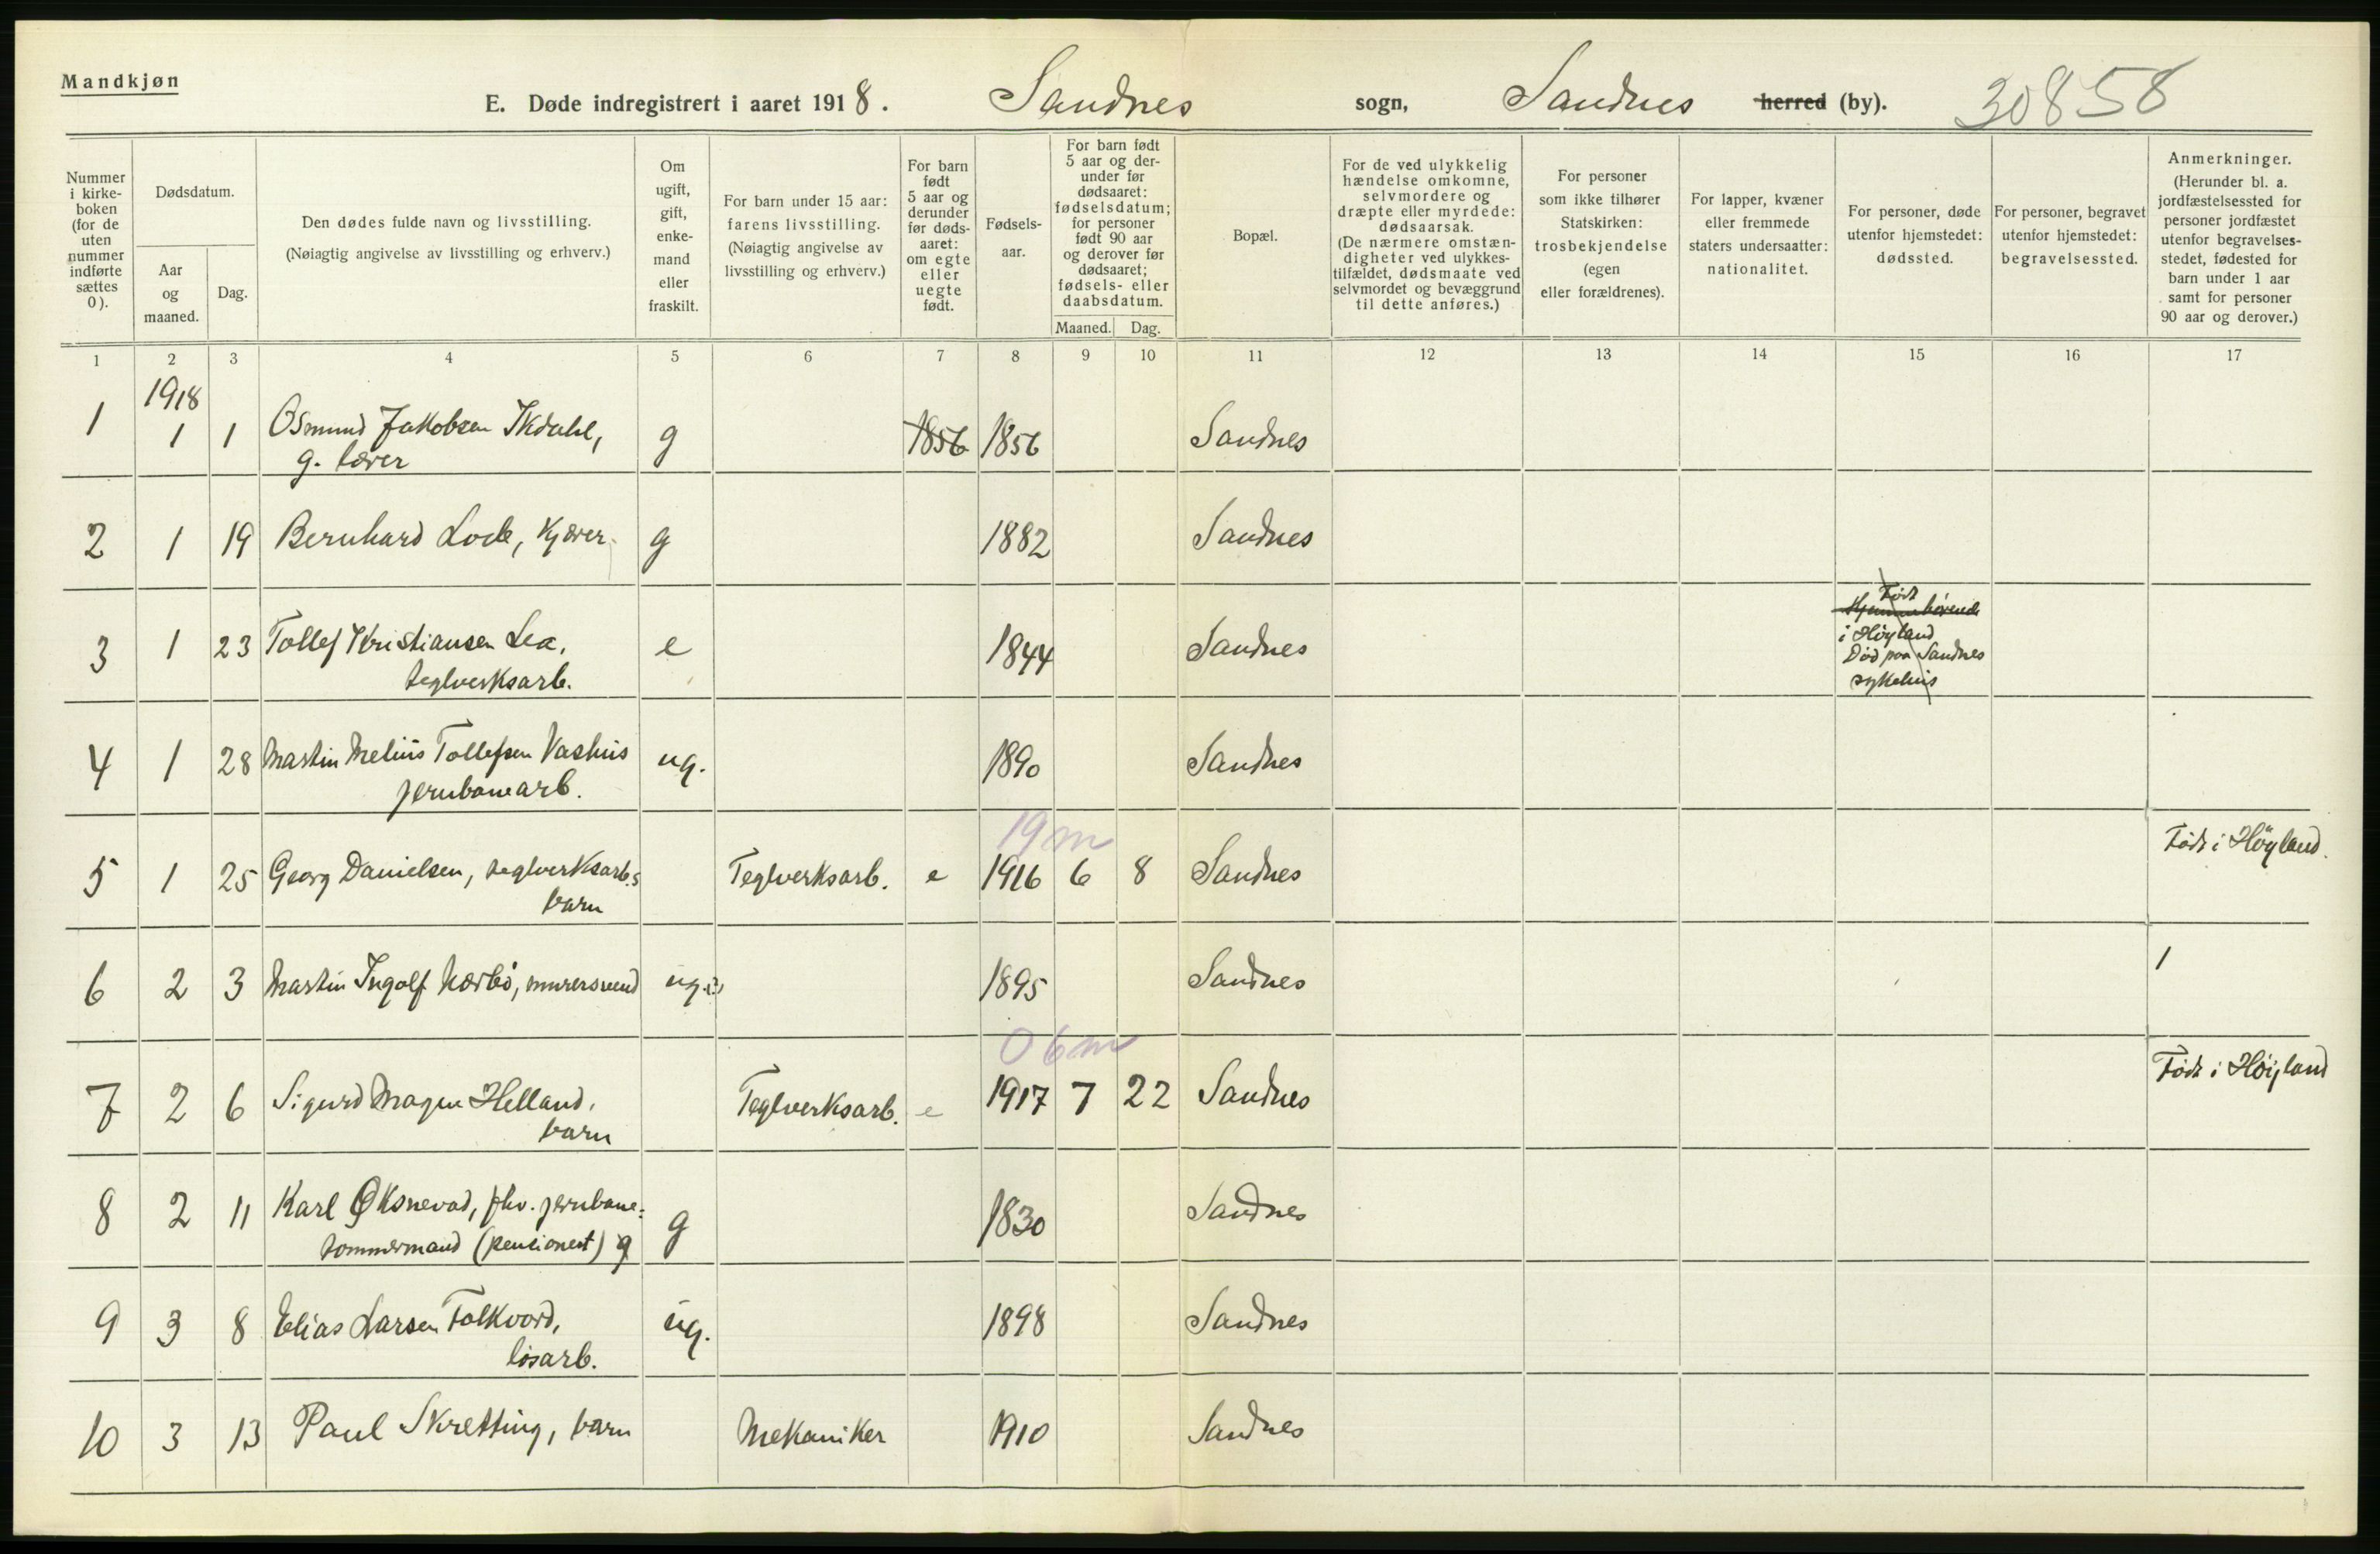 Mandkjøn
E. Døde indregistrert i aaret 1918. Sandnes sogn, Sandnes herred (by). 30858
Nummer i kirke-boken (for de uten nummer indførte sættes 0).
Dødsdatum.
Aar og maaned.
Dag.
Den dødes fulde navn og livsstilling.
(Nøiagtig angivelse av livsstilling og erhverv.)
Om ugift, gift, enke-mand eller fraskilt.
For barn under 15 aar: farens livsstilling.
(Nøiagtig angivelse av livsstilling og erhverv.)
For barn født 5 aar og derunder før døds-aaret: om egte eller uegte født.
Fødsels-aar.
For barn født 5 aar og der-under før dødsaaret: fødselsdatum; for personer født 90 aar og derover før dødsaaret; fødsels- eller daabsdatum.
Maaned. Dag.
Bopæl.
For de ved ulykkelig hændelse omkomne, selvmordere og dræpte eller myrdede: dødsaarsak.
(De nærmere omstæn-digheter ved ulykkes-tilfældet, dødsmaate ved selvmordet og bevæggrund til dette anføres.)
For personer som ikke tilhører Statskirken: trosbekjendelse (egen eller forældrenes).
For lapper, kvæner eller fremmede staters undersaatter: nationalitet.
For personer, døde utenfor hjemstedet: dødssted.
For personer, begravet utenfor hjemstedet: begravelsessted.
Anmerkninger.
(Herunder bl. a. jordfæstelsessted for personer jordfæstet utenfor begravelses-stedet, fødested for barn under 1 aar samt for personer 90 aar og derover.)
1 2 3 4 5 6 7 8 9 10 11 12 13 14 15 16 17
1918
1 1 1 Osmund Jakobsen Ikdahl, g 1856 1856 Sandnes
g.
2 1 19 Bernhard Lode, Kjører g 1882 Sandnes
3 1 23 Tollef Kristiansen Lea, e 1844 Sandnes
teglverksarb.
Født
i Høyland
Død paa Sandnes
sykehus
4 1 28 Martin Melius Tollefsen Vashus ug. 1890 Sandnes
jernbanearb.
19 m
5 1 25 Georg Danielsen, teglverksarb.s Teglverksarb. e 1916 6 8 Sandnes Født i Høyland.
barn
6 2 3 Martin Ingolf Nærbø, murersvend ug. 1895 Sandnes 1
0 6 m
7 2 6 Sigurd Magne Helland, Teglverksarb. e 1917 7 22 Sandnes Født i Höijland
barn
8 2 11 Karl Øksnevad, fhv. jernbane= g 1830 Sandnes
tømmermand (pensionert) g
9 3 8 Elias Larsen Folkvord, ug. 1898 Sandnes
løsarb.
10 3 13 Paul Skretting, barn Mekaniker 1910 Sandnes